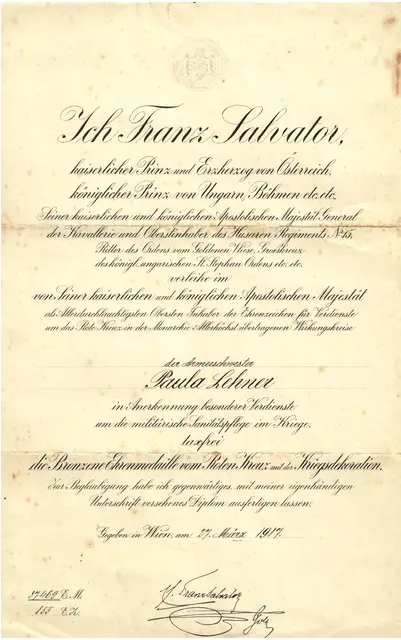 Ich Franz Salvator,
kaiserlicher Prinz und Erzherzog von Österreich,
königlicher Prinz von Ungarn, Böhmen etc. etc.
Seiner kaiserlichen und königlichen Apostolischen Majestät General
der Kavallerie und Oberstinhaber des Husaren Regiments No 15,
Ritter des Ordens vom Goldenen Vlise, Großkreuz
des königl. ungarischen St. Stephan Ordens etc. etc.
verleihe im
von Seiner kaiserlichen und königlichen Apostolischen Majestät
als Allerdurchlauchtigsten Obersten Inhaber der Ehrenzeichen für Verdienste
um das Rote Kreuz in der Monarchie Allerhöchst übertragenen Wirkungskreise
der Armeeschwester
Paula Lehner
in Anerkennung besonderer Verdienste
um die militärische Sanitätspflege im Kriege,
taxfrei
die Bronzene Ehrenmedaille vom Roten Kreuz mit der Kriegsdekoration.
Zur Beglaubigung habe ich gegenwärtiges, mit meiner eigenhändigen
Unterschrift versehenes Diplom ausfertigen lassen.
Gegeben in Wien, am 27. März 1917.
37469 E.M.
158 E.Z.
Franz Salvator